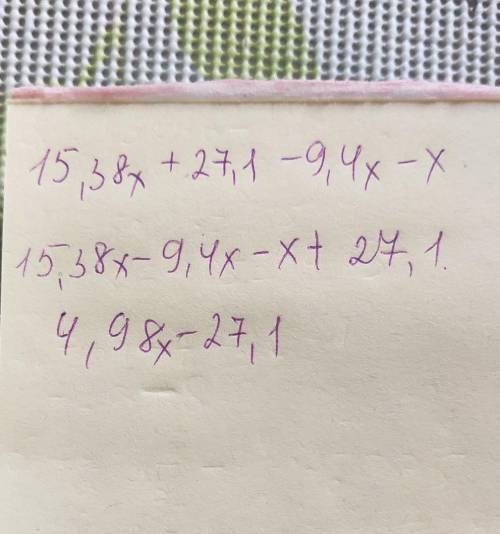 15,38x + 27,1 - 9,4x - x
15,38x - 9,4x - x + 27,1.
4,98x - 27,1